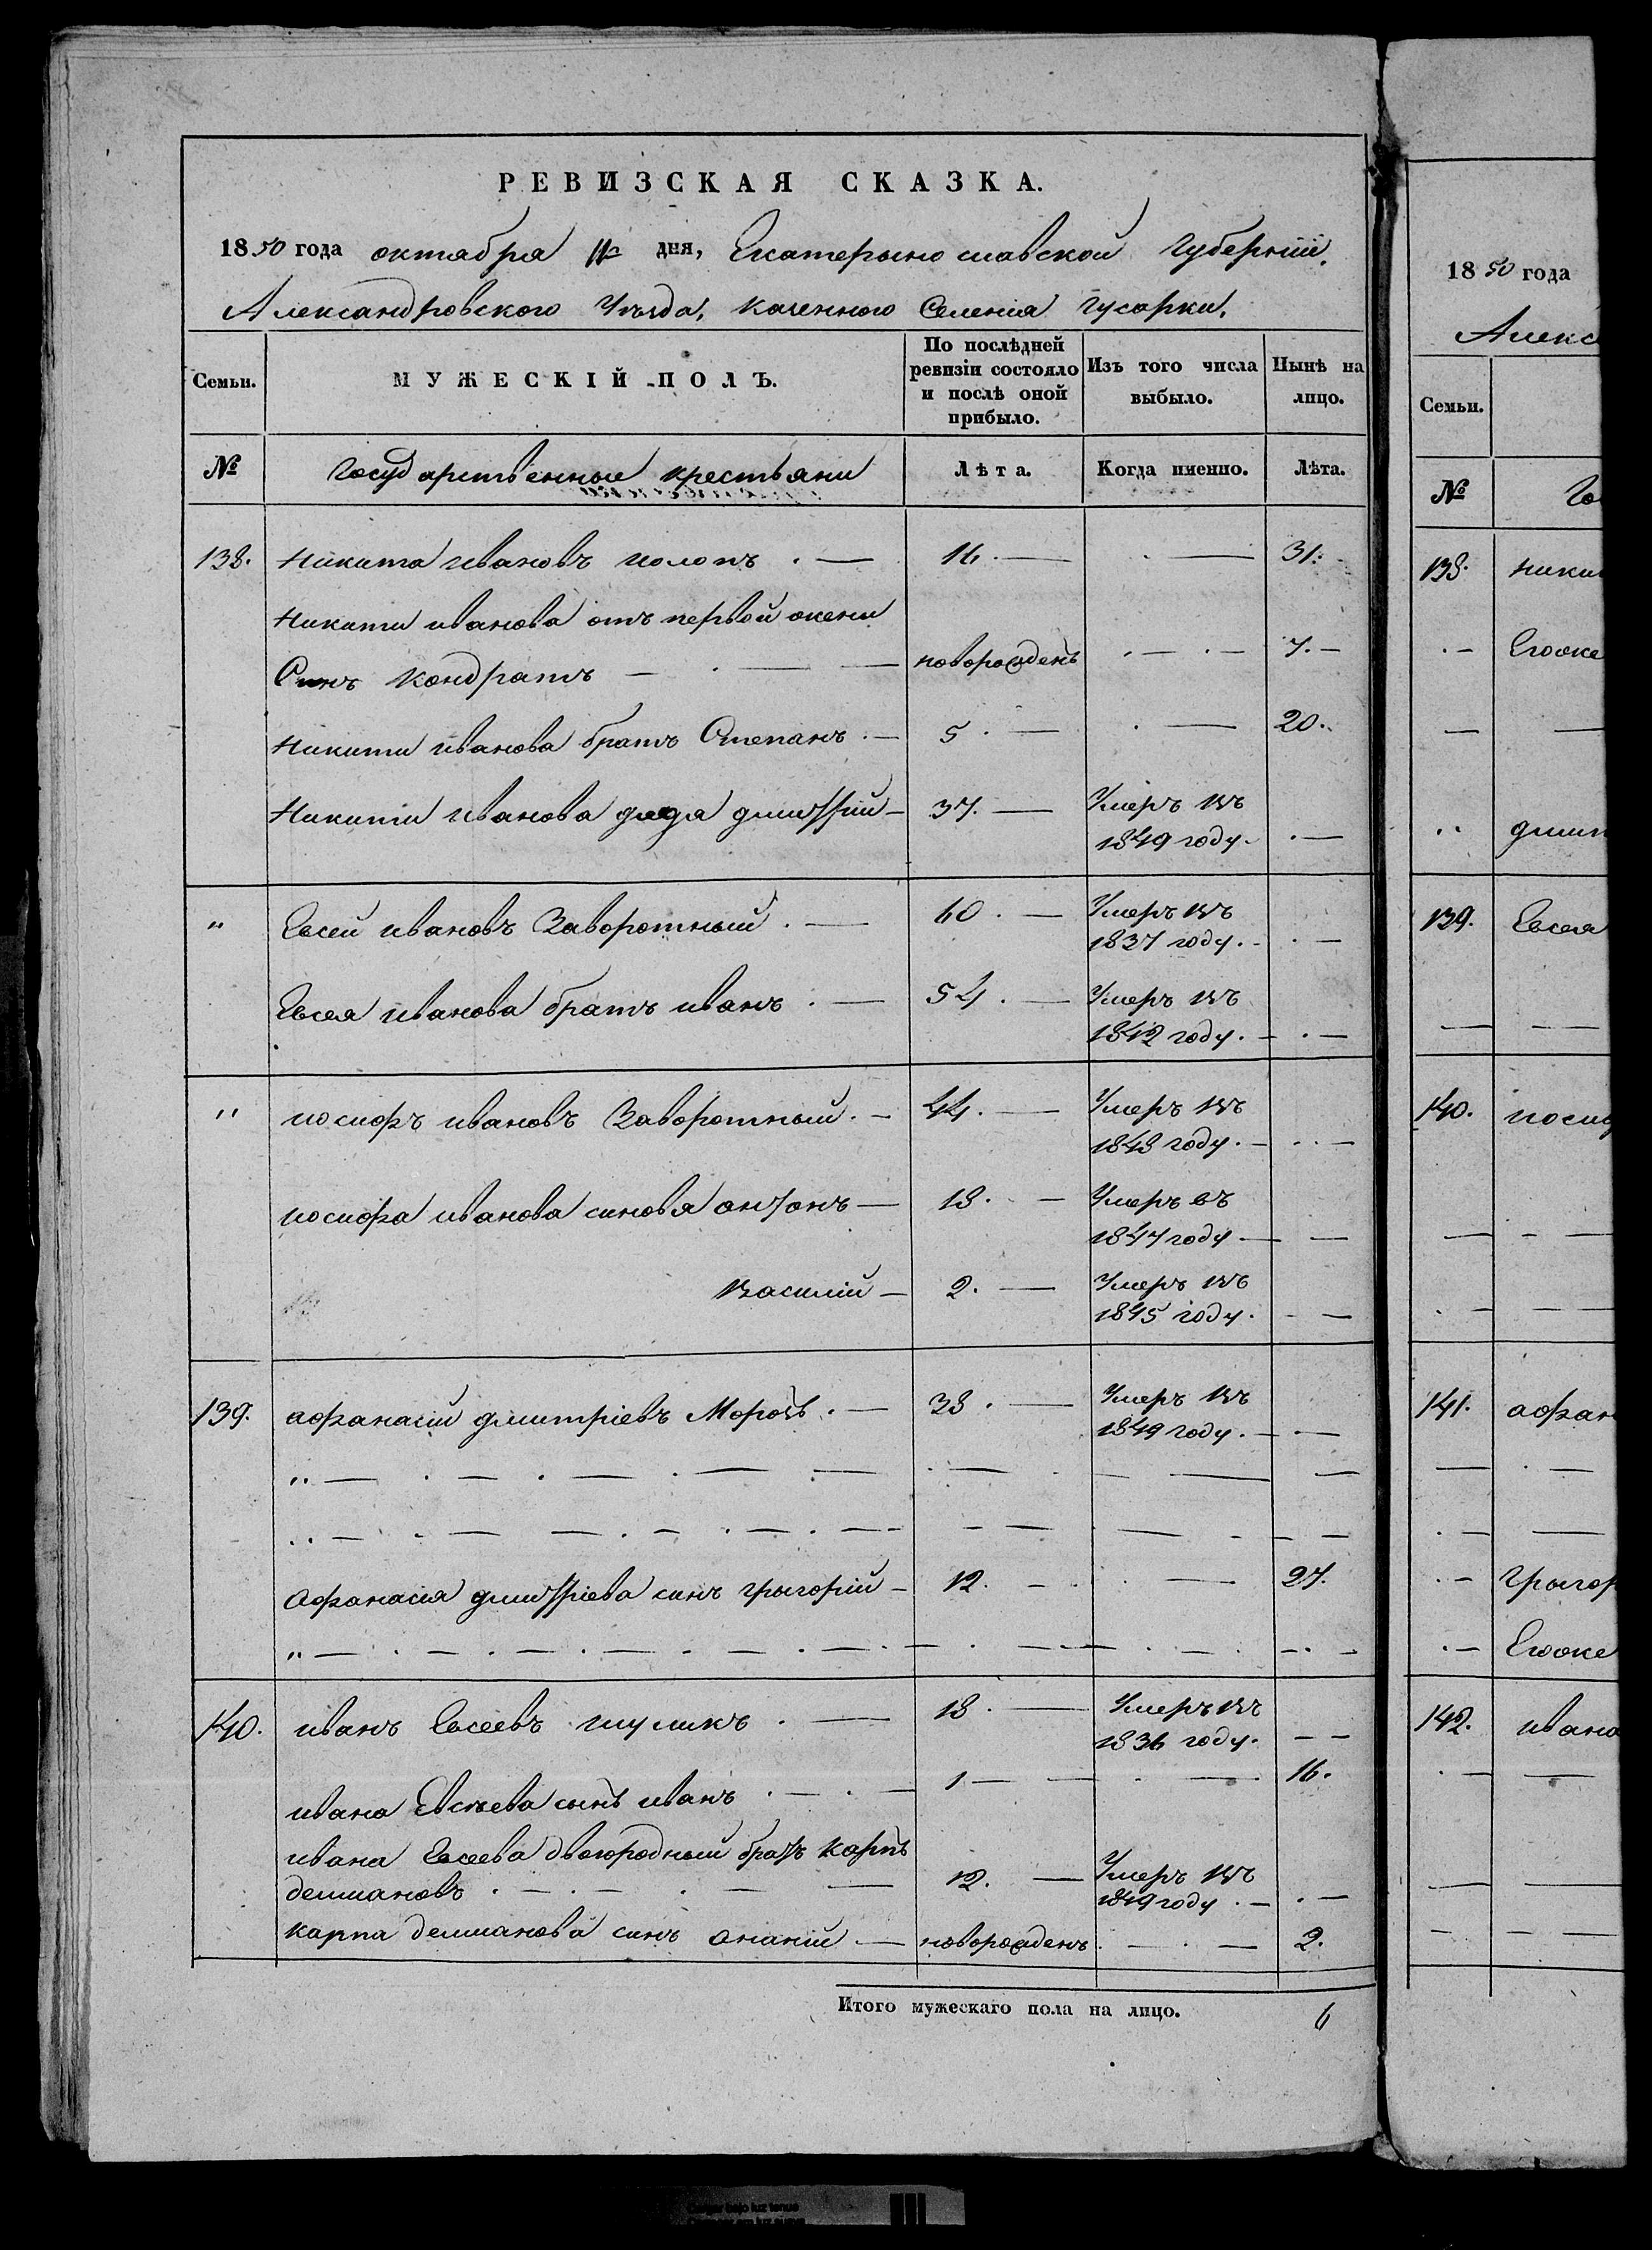 РЕВИЗСКАЯ СКАЗКА.
1850 года октабря 11го дня, Екатерынославской Губернии,
Александровского Уезда, казенного Селенія Гусарки,
Семьи. МУЖЕСКІЙ ПОЛЪ. По послѣдней ревизіи состояло и послѣ оной прибыло. Изъ того числа выбыло. Нынѣ на лицо.
№ Государственные крестьяни Лѣта. Когда именно. Лѣта.
138. Никита ивановъ 16. — . — 31.
Никити иванова отъ первой жени
Синъ кондратъ — . — новорожденъ . — . — 7. —
Никити иванова братъ Степанъ . — 5 . — . — 20.
Никити иванова дядя дмитрій — 37. — Умеръ въ
1849 году. . —
" Евсей ивановъ Заворотный . — 60 . — Умеръ въ
1837 году. - . —
Евсея иванова братъ иванъ . — 54 . — Умеръ въ
1842 году. — . —
" иосифъ ивановъ Заворотный. — 44. — Умеръ въ
1848 году. — . . —
иосифа иванова синовя антонъ — 18. — Умеръ въ
1847 году — —
Василій — 2. — Умеръ въ
1845 году. - —
139. афанасій дмитріевъ Морозъ . — 38 . — Умеръ въ
1849 году. — . —
афанасия дмитріева синъ григорій — 12. — . — 27.
140. иванъ Евсеевъ шуликъ . — 18. — Умеръ въ
1836 году. — —
ивана Евсѣева сынъ иванъ . — . — 1 — — . — 16.
ивана Евсеева двоюродный братъ карпъ
демяновъ . — . — . — — 12. — Умеръ въ
1849 году . — . —
карпа демянова синъ ананій . — новорожденъ . — . — 2.
Итого мужескаго пола на лицо. 6
1850 года
Алекс
Семьи.
№ Го
138. Ники
. — Егоже
. . дмит
139. Евсея
140. иосиф
141. афан
. — Григор
. — Егоже
142. ивана